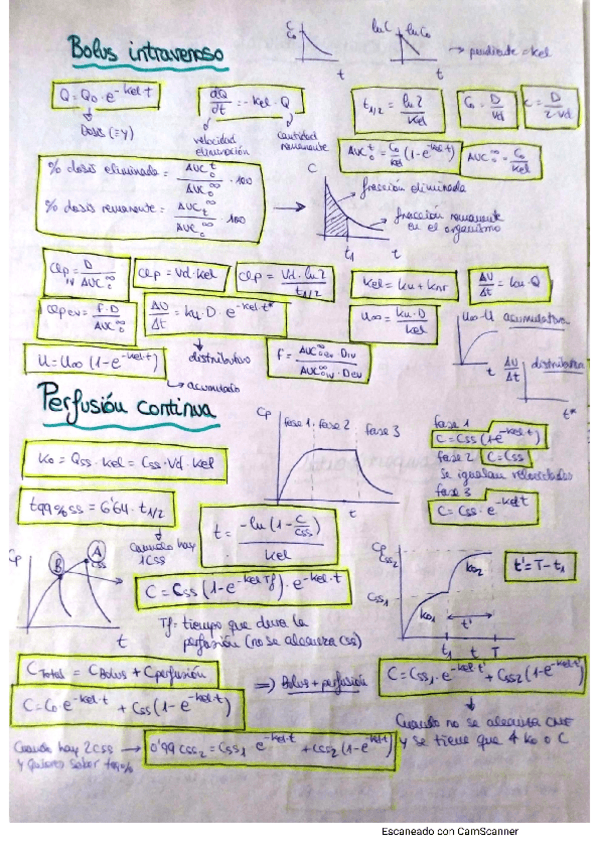 Bolus intravenoso
C
C₀
t
lnC
lnC₀
t
→ pendiente = kel
Q = Q₀ · e^-kel·t
Dosis (≡γ)
dQ/dt = - kel · Q
velocidad eliminación
cantidad remanente
t1/2 = ln2/kel
C₀ = D/Vd
C = D/2·Vd
AUC₀ᵗ = C₀/kel (1-e^-kel·t)
AUC₀^∞ = C₀/kel
% dosis eliminada = AUC₀ᵗ/AUC₀^∞ · 100
% dosis remanente = AUCt^∞/AUC₀^∞ · 100
C
fracción eliminada
fracción remanente en el organismo
t₁
t
Clp IV = D/AUC₀^∞
Clp = Vd · kel
Clp = Vd · ln2/t1/2
kel = ku + knr
ΔU/Δt = ku · Q
Clp ev = f · D/AUC₀^∞
ΔU/Δt = ku · D · e^-kel·t*
U∞ = ku · D/kel
U∞-U acumulativa
t
U = U∞ (1-e^-kel·t)
→ acumulado
distributivo
f = AUC₀^∞ev · Div/AUC₀^∞iv · Dev
ΔU/Δt
distributiva
t*
Perfusión continua
Cp
fase 1 · fase 2
fase 3
t
fase 1
C = Css (1-e^-kel·t)
fase 2 C = Css
se igualan velocidades
fase 3
C = Css · e^-kel·t
K₀ = Qss · kel = Css · Vd · kel
t99%ss = 6'64 · t1/2
Cuando hay 1Css
t = -ln (1 - C/Css)/kel
Cp
B
A
Css
t
C = Css (1-e^-kel Tf) · e^-kel·t
Tf = tiempo que dura la perfusión (no se alcanza Css)
Cp
Css₂
Css₁
ko₁
ko₂
t'
t₁ t T
t' = T - t₁
CTotal = CBolus + Cperfusión
C = C₀ e^-kel·t + Css (1-e^-kel·t)
⇒ Bolus + perfusión
C = Css₁ · e^-kel t' + Css₂ (1-e^-kel·t)
Cuando no se alcanza CME y se tiene que ↑ ko o C
Cuando hay 2Css
y quieres saber t99%
→ 0'99 Css₂ = Css₁ e^-kel·t + Css₂ (1-e^-kel·t)
Escaneado con CamScanner